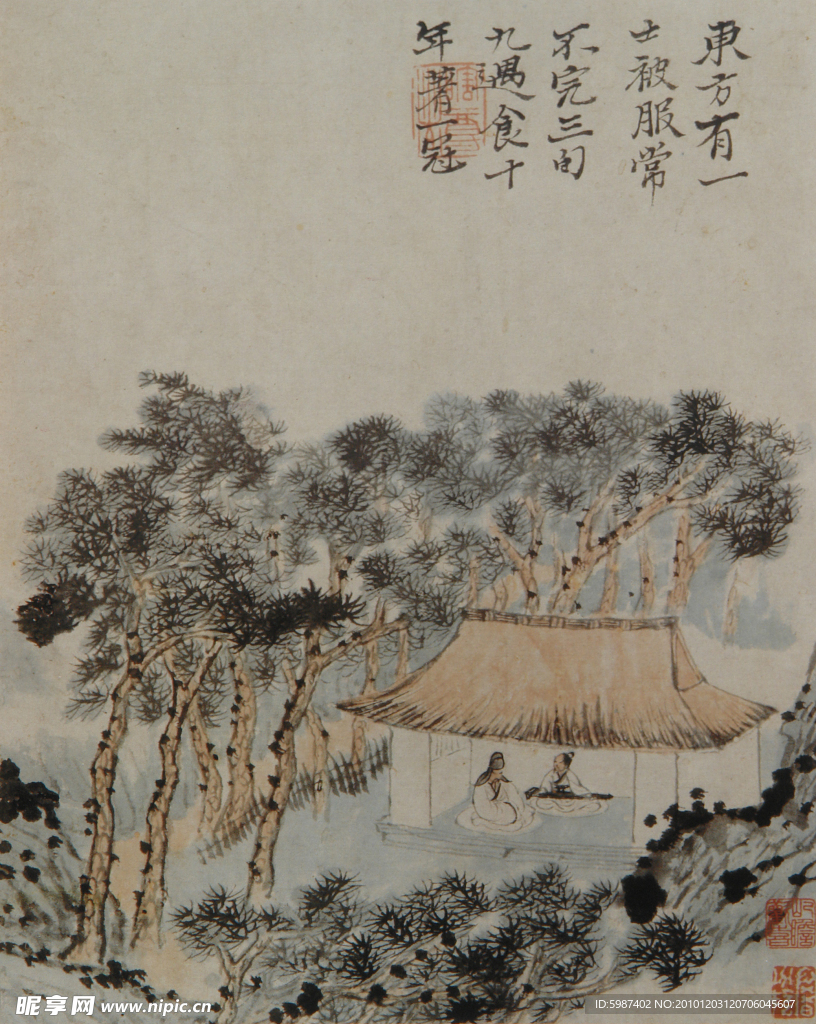 東方有一
士被服常
不完三旬
九遇食十
年著一冠
昵享网 www.nipic.cn
ID:5987402 NO:20101203120706045607